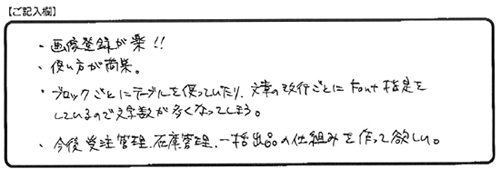 【ご記入欄】
・画像登録が楽!!
・使い方が簡単。
・ブロックごとにテーブルを使っていたり、文章の改行ごとにfont指定を
しているので文字数が多くなってしまう。
・今後受注管理、在庫管理、一括出品の仕組みを作って欲しい。